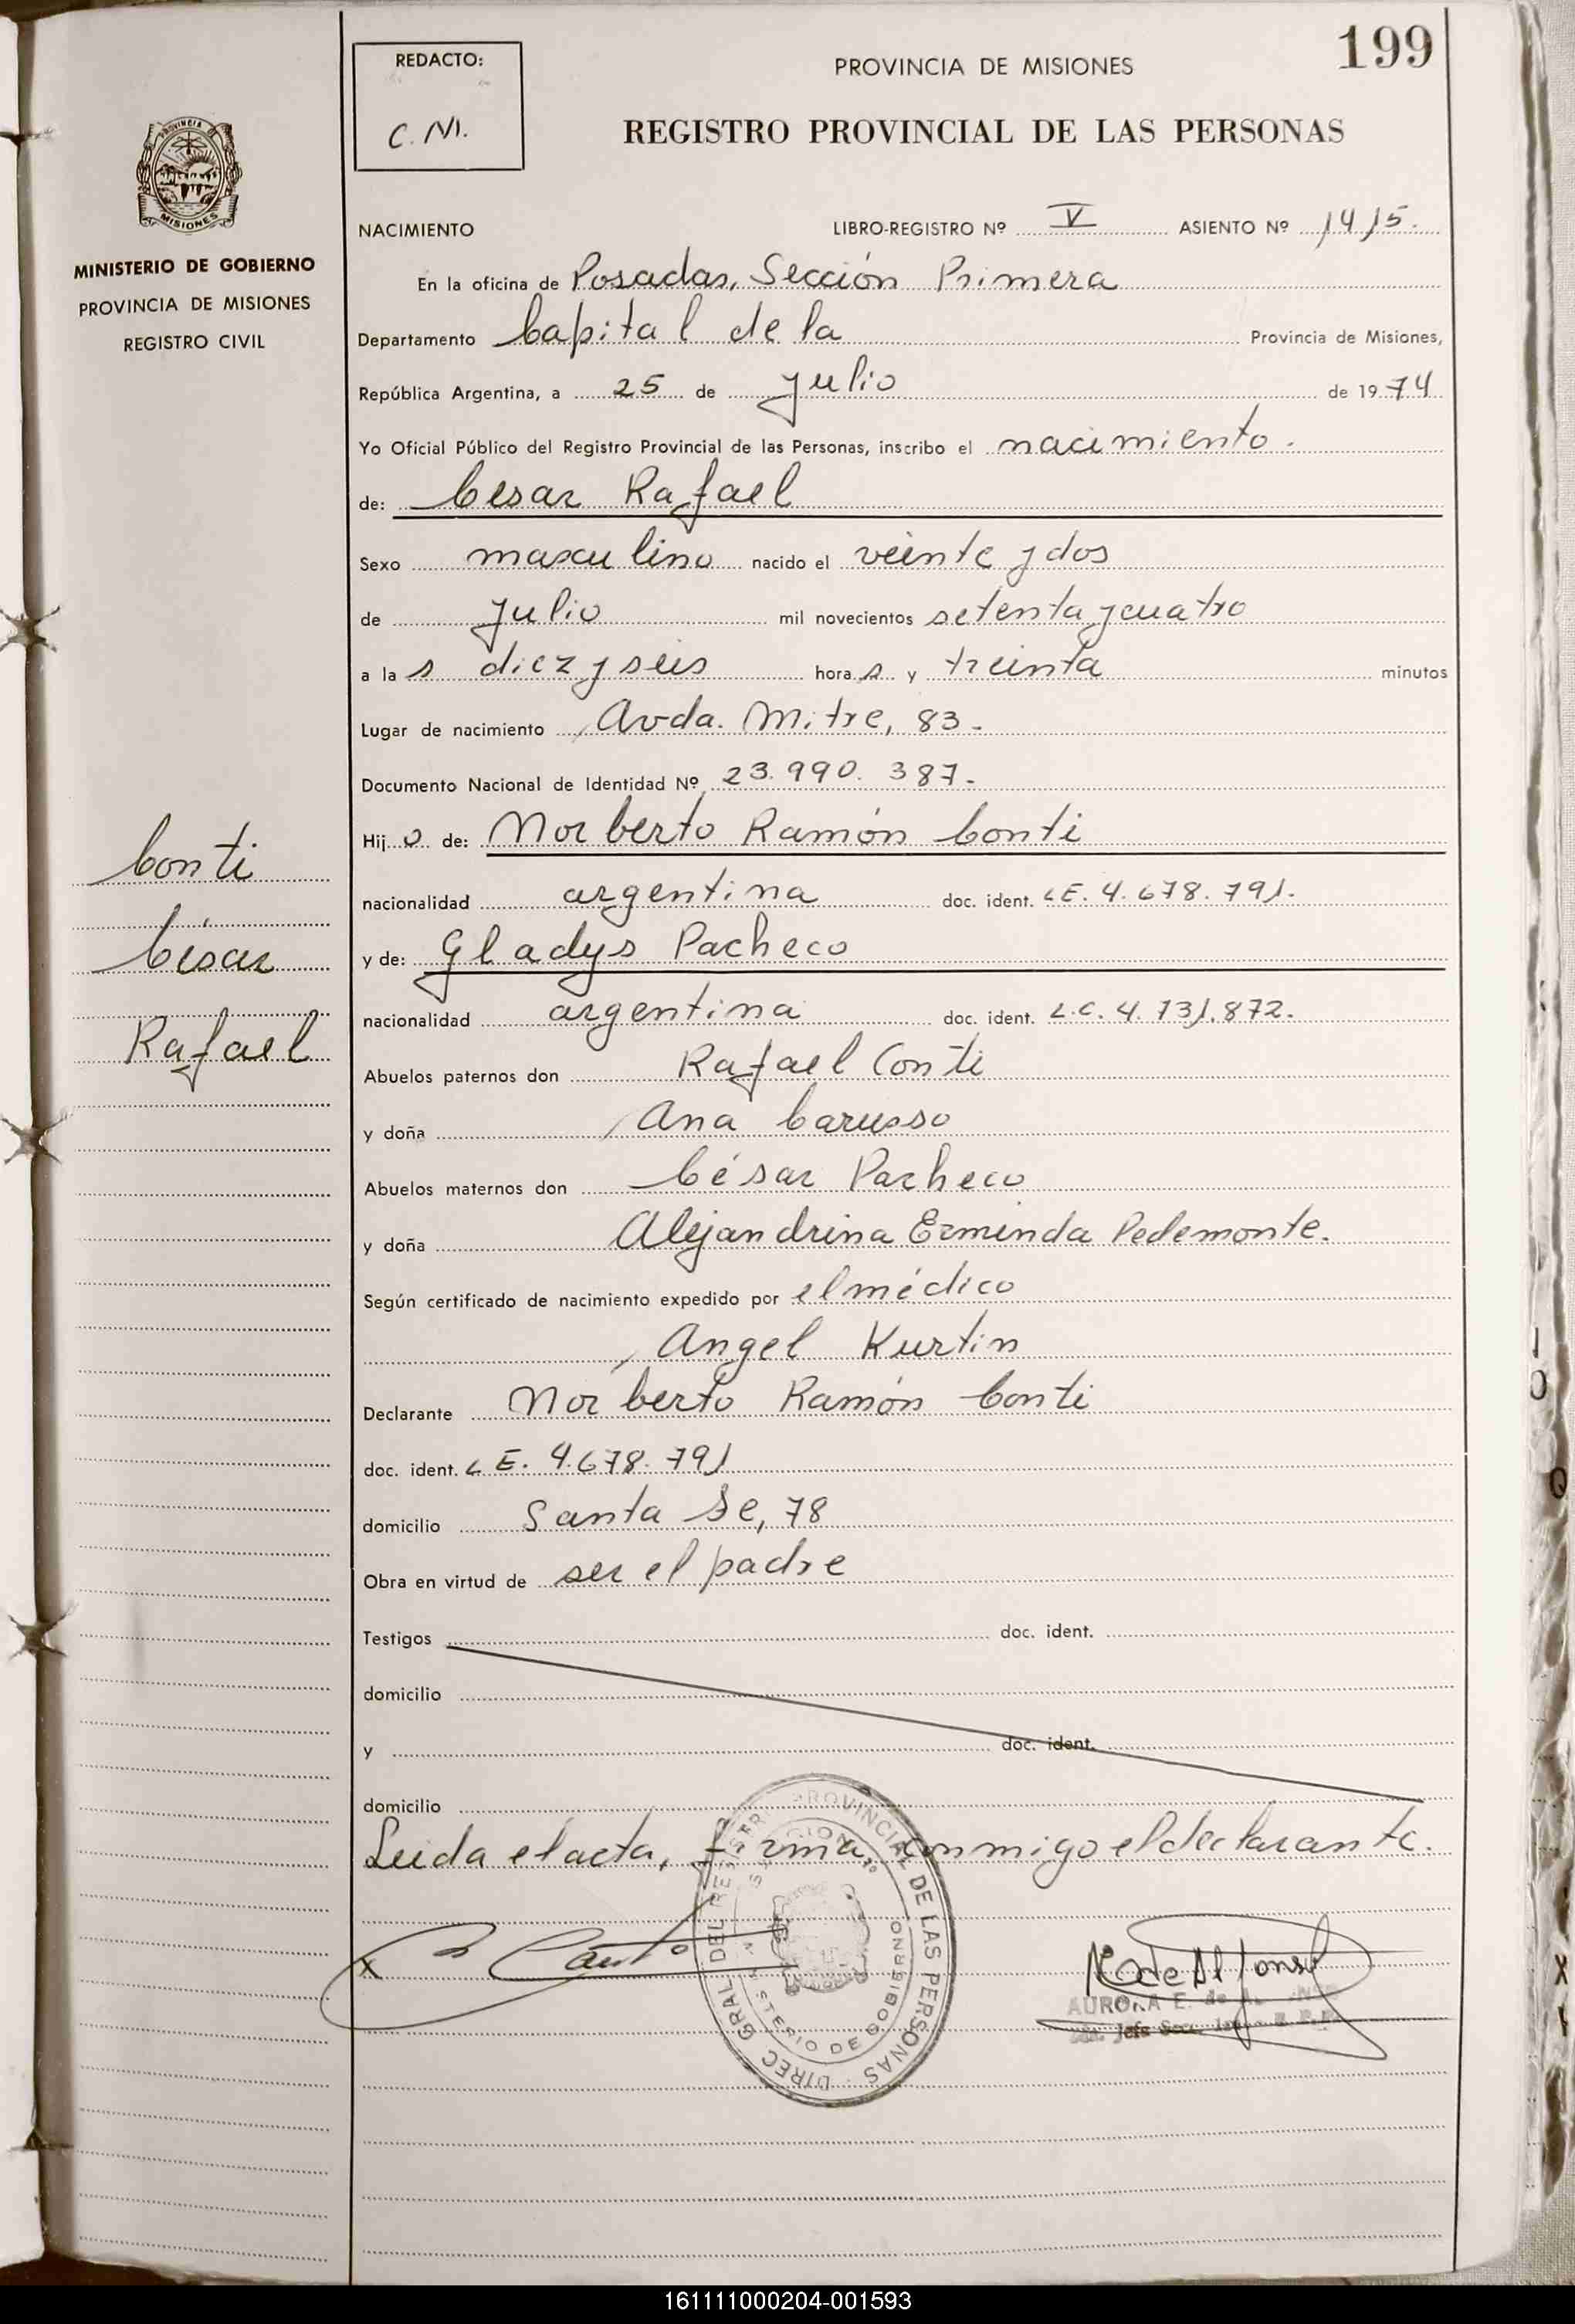 199
REDACTO:
C. M.
PROVINCIA DE MISIONES
REGISTRO PROVINCIAL DE LAS PERSONAS
PROVINCIA DE
MISIONES
MINISTERIO DE GOBIERNO
PROVINCIA DE MISIONES
REGISTRO CIVIL
NACIMIENTO LIBRO-REGISTRO Nº V ASIENTO Nº 1415.
En la oficina de Posadas, Sección Primera
Departamento Capital de la Provincia de Misiones,
República Argentina, a 25 de Julio de 1974
Yo Oficial Público del Registro Provincial de las Personas, inscribo el nacimiento.
de: Cesar Rafael
Sexo masculino nacido el veinte y dos
de Julio mil novecientos setenta y cuatro
a las diez y seis horas y treinta minutos
Lugar de nacimiento Avda. Mitre, 83.-
Documento Nacional de Identidad Nº 23.990.387.-
Hijo de: Norberto Ramón Conti
nacionalidad argentina doc. ident. LE. 4.678.791.
y de: Gladys Pacheco
nacionalidad argentina doc. ident. L.C. 4.731.872.
Abuelos paternos don Rafael Conti
y doña Ana Carusso
Abuelos maternos don César Pacheco
y doña Alejandrina Erminda Pedemonte.
Según certificado de nacimiento expedido por el médico
Angel Kurtin
Declarante Norberto Ramón Conti
doc. ident. L E. 4.678.791
domicilio Santa Fe, 78
Obra en virtud de ser el padre
Testigos doc. ident.
domicilio
y doc. ident.
domicilio
Leida el acta, firma conmigo el declarante.
Conti
César
Rafael
DIREC. GRAL. DEL REGISTRO PROVINCIAL DE LAS PERSONAS
MINISTERIO DE GOBIERNO
X
AURORA E. de
Jefe Secc.
161111000204-001593